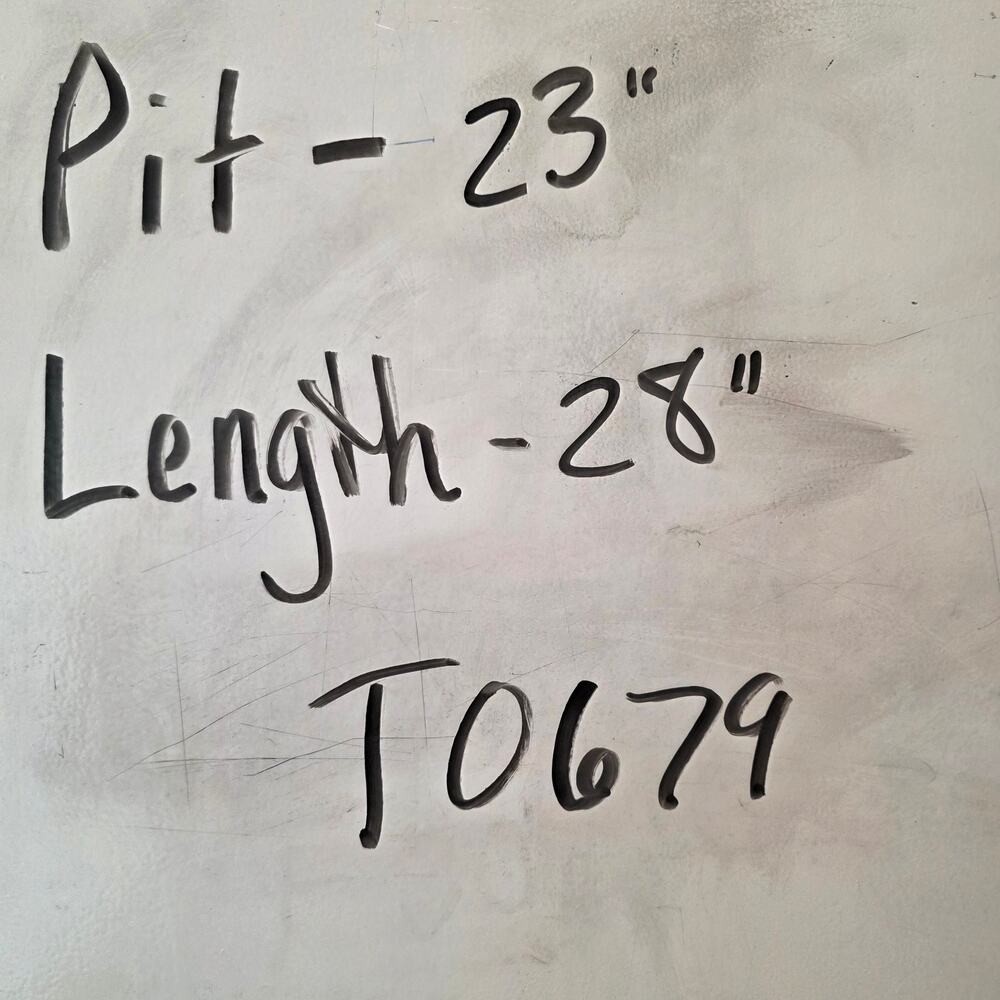 Pit - 23"
Length - 28"
T0679